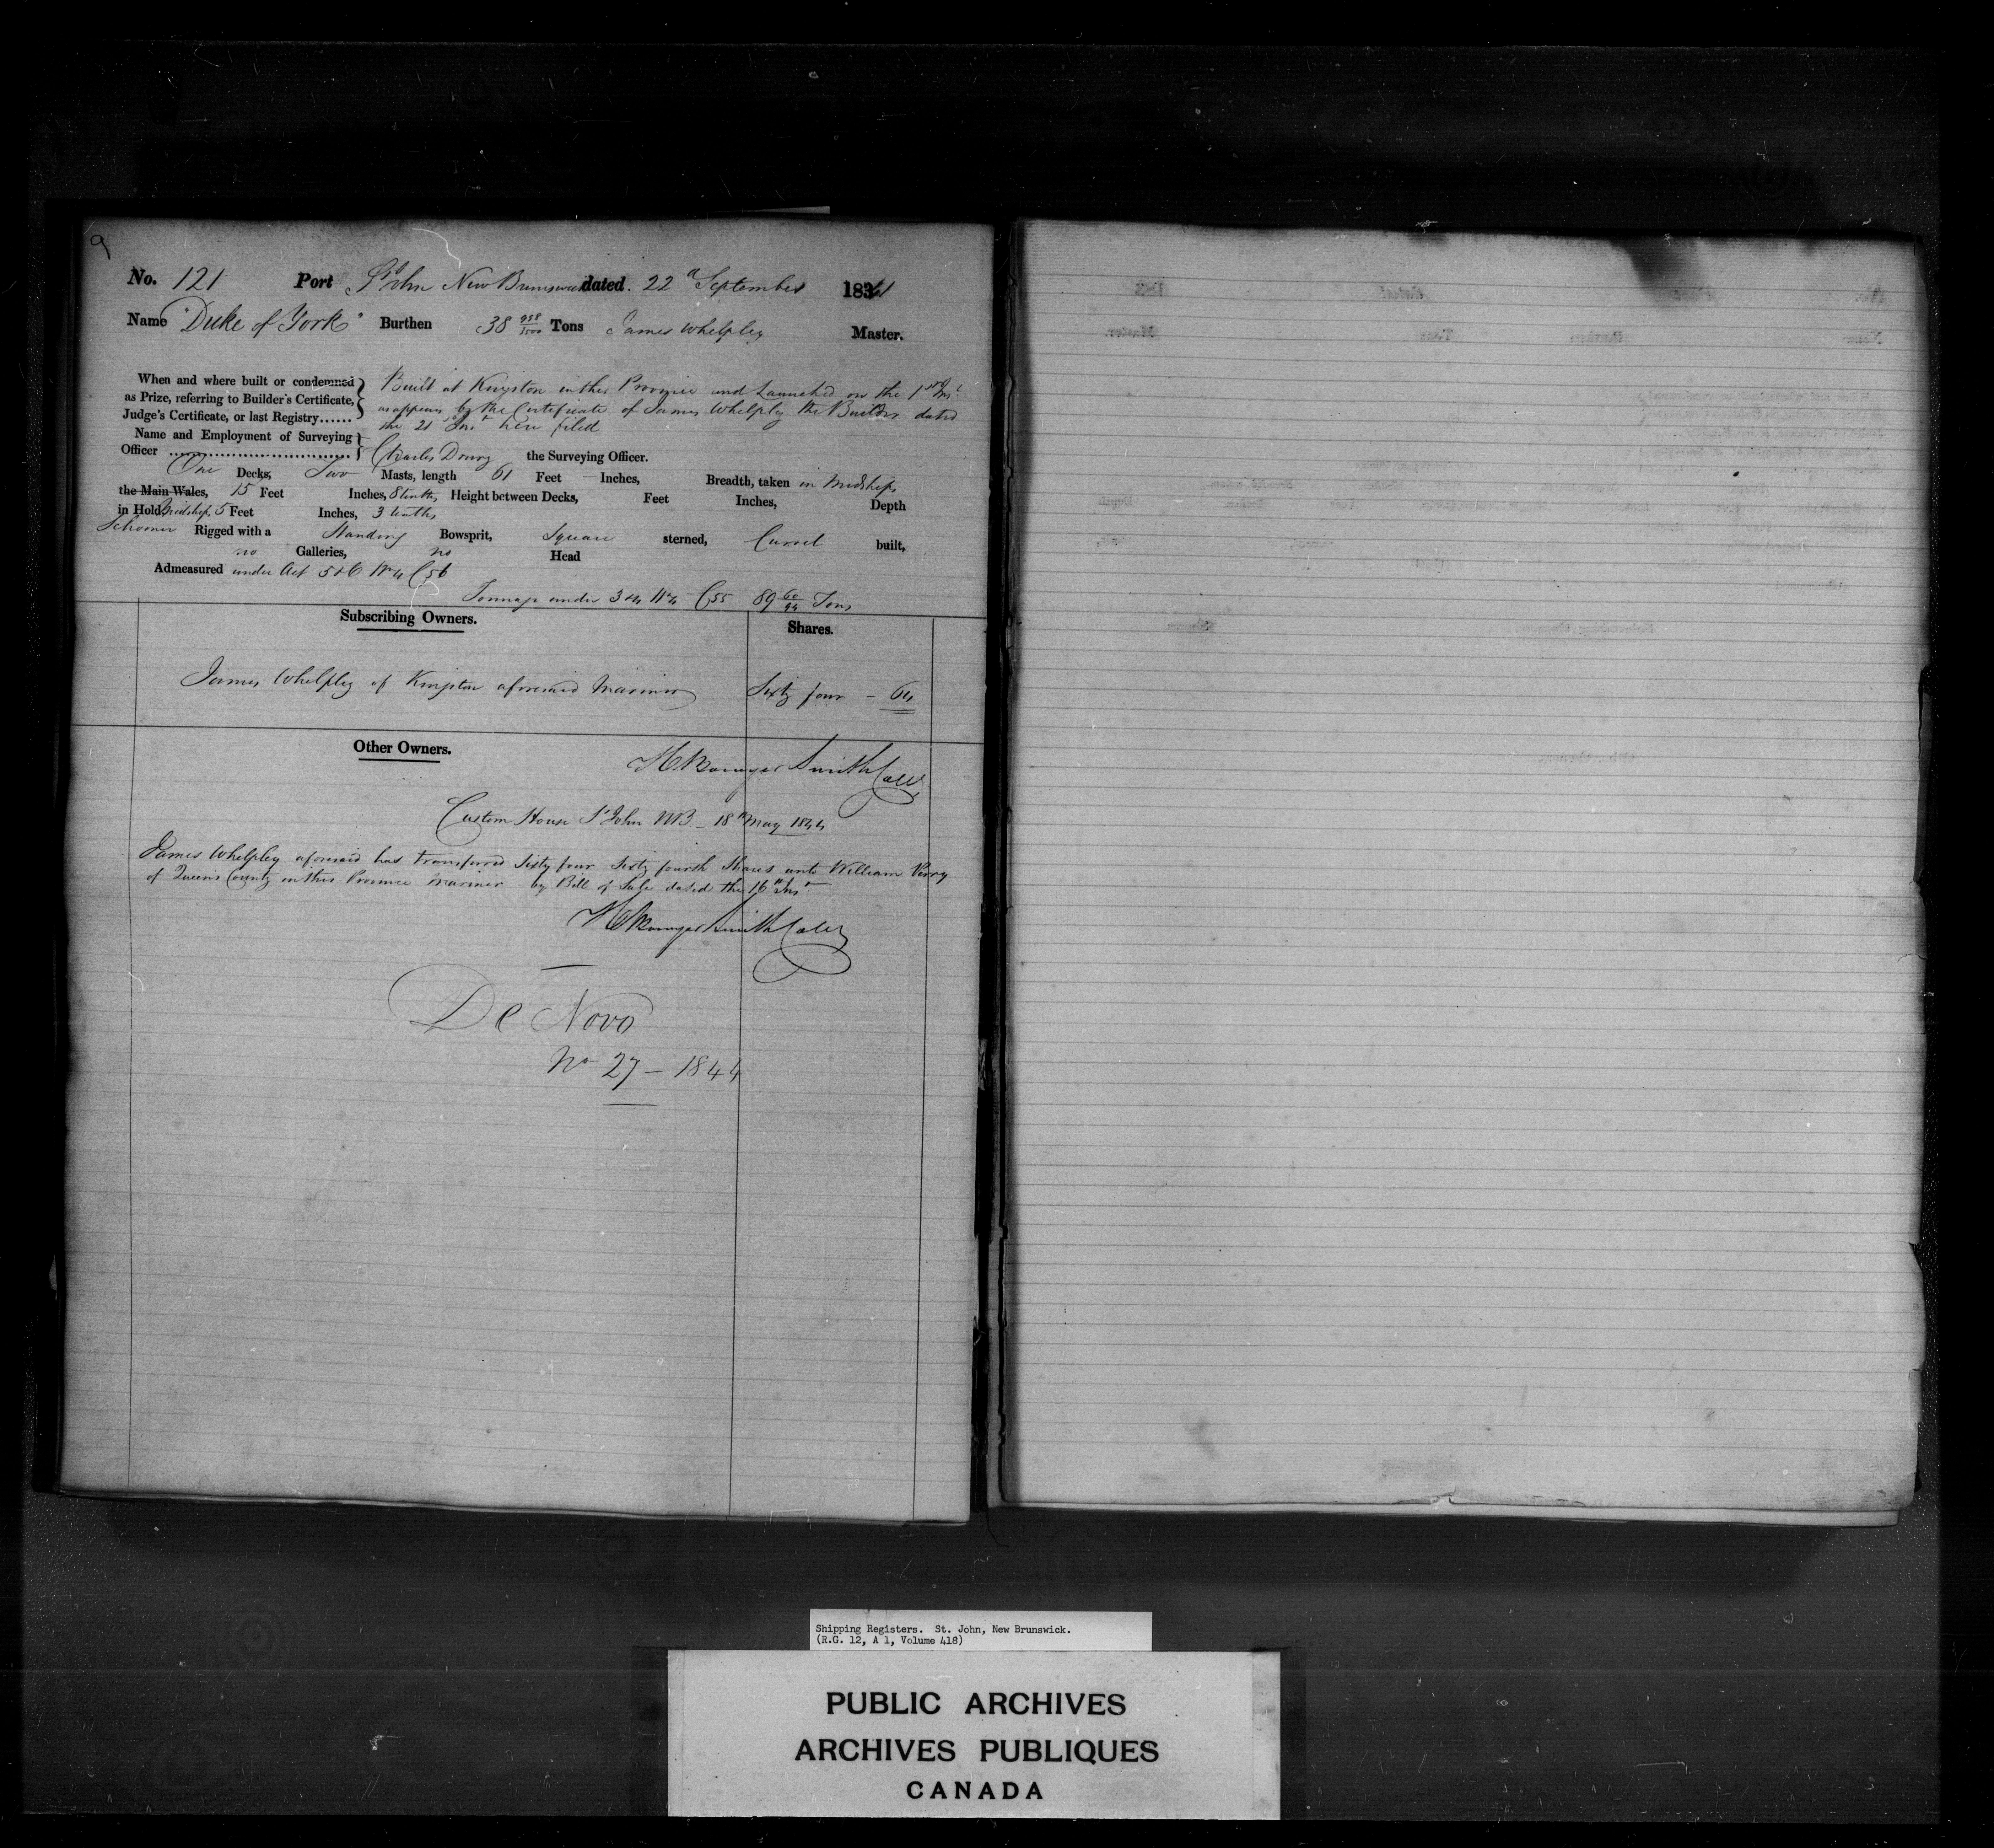 9
No. 121 Port St John New Brunswick dated. 22d September 1841
Name "Duke of York" Burthen 38 958/3500 Tons James Whelpley Master.
When and where built or condemned as Prize, referring to Builder's Certificate, Judge's Certificate, or last Registry......
Built at Kingston in this Province and Launched on the 1st Inst
as appears by the Certificate of James Whelpley the Builder dated
the 21 Inst here filed
Name and Employment of Surveying Officer
Charles Drury the Surveying Officer.
One Decks, Two Masts, length 61 Feet Inches, Breadth, taken in Midships
the Main Wales, 15 Feet Inches, 8 tenths, Height between Decks, Feet Inches, Depth
in Hold Midships, 5 Feet Inches, 3 tenths
Schooner Rigged with a Standing Bowsprit, Square sterned, Carvel built,
no Galleries, no Head
Admeasured under Act 5 & 6 Wm 4 C 56
Tonnage under 3 & 4 Wm 4 C 55 89 60/94 Tons
Subscribing Owners. Shares.
James Whelpley of Kingston aforesaid Mariner Sixty four - 64
Other Owners.
Smith Collr
Custom House St John NB - 18th May 1844
James Whelpley aforesaid has transferred Sixty four Sixty fourth Shares unto William Perry
of Queen's County in this Province Mariner by Bill of Sale dated the 16th Inst
Smith Collr
De Novo
No 27 - 1844
Shipping Registers. St. John, New Brunswick.
(R.G. 12, A 1, Volume 418)
PUBLIC ARCHIVES
ARCHIVES PUBLIQUES
CANADA